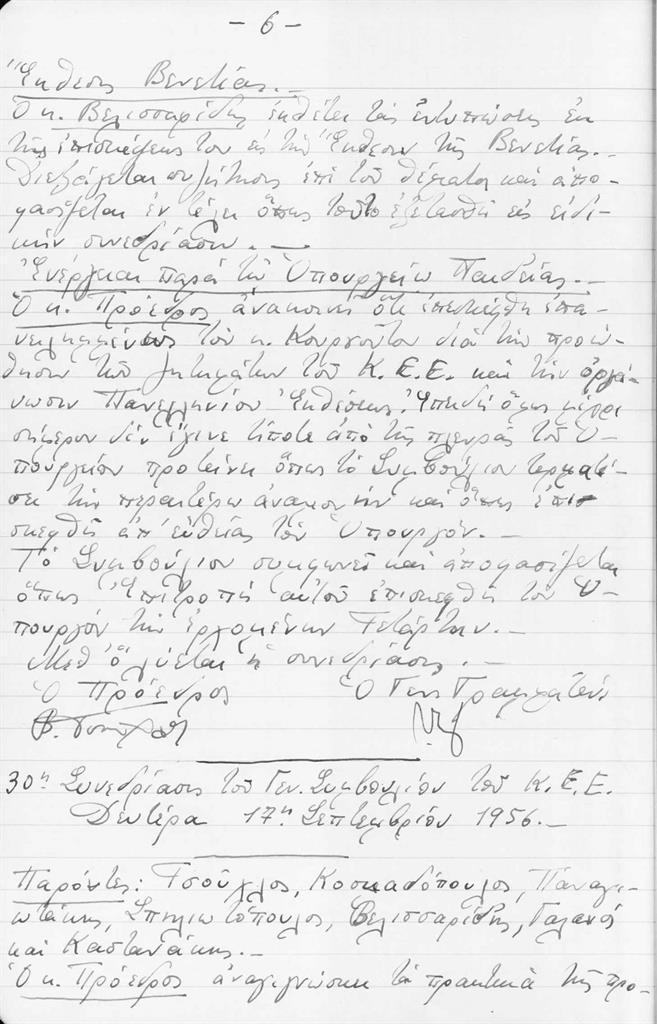 - 6 -
Ἔκθεσις Βενετίας.-
Ὁ κ. Βελισσαρίδης ἐκθέτει τὰς ἐντυπώσεις ἐκ
τῆς ἐπισκέψεώς του εἰς τὴν Ἔκθεσιν τῆς Βενετίας.-
Διεξάγεται συζήτησις ἐπὶ τοῦ θέματος καὶ ἀπο-
φασίζεται ἐν τέλει ὅπως τοῦτο ἐξετασθῇ εἰς εἰδι-
κὴν συνεδρίασιν.-
Ἐνέργειαι παρὰ τῷ Ὑπουργείῳ Παιδείας.-
Ὁ κ. Πρόεδρος ἀνακοινοῖ ὅτι ἐπεσκέφθη ἐπα-
νειλημμένως τὸν κ. Κουρνοῦτον διὰ τὴν προώ-
θησιν τῶν ζητημάτων τοῦ Κ.Ε.Ε. καὶ τὴν ὀργά-
νωσιν Πανελληνίου Ἐκθέσεως. Ἐπειδὴ ὅμως μέχρι
σήμερον δὲν ἔγινε τίποτε ἀπὸ τῆς πλευρᾶς τοῦ Ὑ-
πουργείου προτείνει ὅπως τὸ Συμβούλιον τερματί-
σει τὴν περαιτέρω ἀναμονήν καὶ ὅπως ἐπι-
σκεφθῇ ἀπ' εὐθείας τὸν Ὑπουργόν.-
Τὸ Συμβούλιον συμφωνεῖ καὶ ἀποφασίζεται
ὅπως Ἐπιτροπὴ αὐτοῦ ἐπισκεφθῇ τὸν Ὑ-
πουργὸν τὴν ἐρχομένην Τετάρτην.-
Μεθ' ὃ λύεται ἡ συνεδρίασις.-
Ὁ Πρόεδρος Ὁ Γεν. Γραμματεύς
30ὴ Συνεδρίασις τοῦ Γεν. Συμβουλίου τοῦ Κ.Ε.Ε.
Δευτέρα 17η Σεπτεμβρίου 1956.-
Παρόντες: Τσοῦχλος, Κοσμαδόπουλος, Παναγι-
ωτάκης, Σπηλιωτόπουλος, Βελισσαρίδης, Γαλανός
καὶ Καστανάκης.-
Ὁ κ. Πρόεδρος ἀναγιγνώσκει τὰ πρακτικὰ τῆς προ-